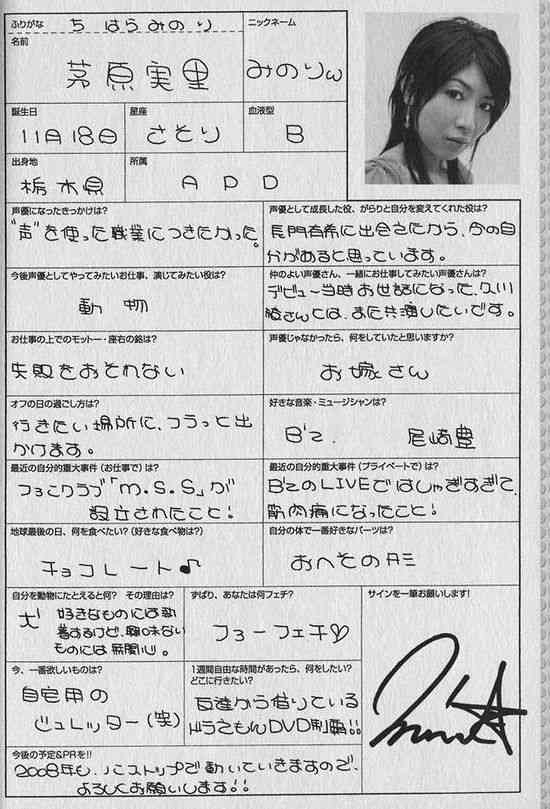 ふりがな ちはらみのり
ニックネーム
名前
茅原実里
みのりん
誕生日
11月18日
星座
さそり
血液型
B
出身地
栃木県
所属
APD
声優になったきっかけは?
"声"を使った職業につきたかった。
声優として成長した役、がらりと自分を変えてくれた役は?
長門有希に出会えたから、今の自
分があると思っています。
今後声優としてやってみたいお仕事、演じてみたい役は?
動物
仲のよい声優さん、一緒にお仕事してみたい声優さんは?
デビュー当時お世話になった、久川
綾さんとは、また共演したいです。
お仕事の上でのモットー・座右の銘は?
失敗をおそれない
声優じゃなかったら、何をしていたと思いますか?
お嫁さん
オフの日の過ごし方は?
行きたい場所に、フラっと出
かけます。
好きな音楽・ミュージシャンは?
B'z. 尾崎豊
最近の自分的重大事件(お仕事で)は?
ファンクラブ「M.S.S」が
設立されたこと!
最近の自分的重大事件(プライベートで)は?
B'zのLIVEではしゃぎすぎて、
筋肉痛になったこと!
地球最後の日、何を食べたい?(好きな食べ物は?)
チョコレート♪
自分の体で一番好きなパーツは?
おへそのカミ
自分を動物にたとえると何? その理由は?
犬 好きなものには執
着するけど、興味ない
ものには無関心。
ずばり、あなたは何フェチ?
フェチ♡
サインを一筆お願いします!
今、一番欲しいものは?
自宅用の
ビュレッター(笑)
1週間自由な時間があったら、何をしたい?
どこに行きたい?
友達から借りている
ドラえもんDVD制覇!!
今後の予定&PRを!!
2008年も、ノンストップで動いていきますので、
よろしくお願いします!!